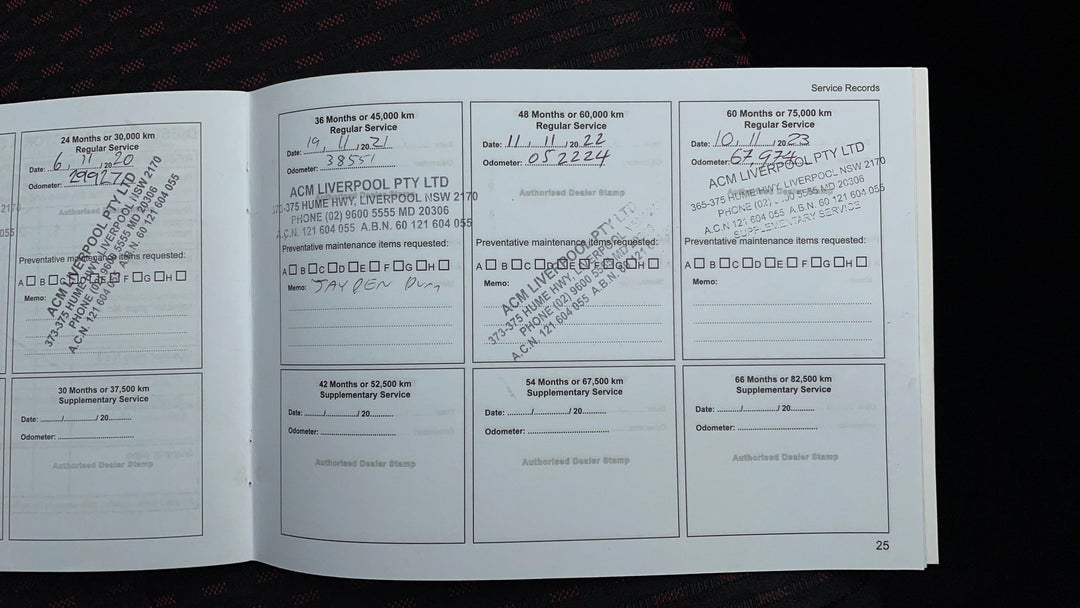 Service Records
24 Months or 30,000 km
Regular Service
Date: 6 / 11 / 2020
Odometer: 29927
Authorised Dealer Stamp
ACM LIVERPOOL PTY LTD
373-375 HUME HWY, LIVERPOOL NSW 2170
PHONE (02) 9600 5555 MD 20306
A.C.N. 121 604 055 A.B.N. 60 121 604 055
Preventative maintenance items requested:
A B C D E F G H
Memo:
30 Months or 37,500 km
Supplementary Service
Date: ......./......./ 20..........
Odometer: ..............................
36 Months or 45,000 km
Regular Service
Date: 19 / 11 / 2021
Odometer: 38551
Authorised Dealer Stamp
ACM LIVERPOOL PTY LTD
373-375 HUME HWY, LIVERPOOL NSW 2170
PHONE (02) 9600 5555 MD 20306
A.C.N. 121 604 055 A.B.N. 60 121 604 055
Preventative maintenance items requested:
A B C D E F G H
Memo: JAYDEN
42 Months or 52,500 km
Supplementary Service
Date: ......./......./ 20..........
Odometer: ..............................
Authorised Dealer Stamp
48 Months or 60,000 km
Regular Service
Date: 11 / 11 / 2022
Odometer: 052224
Authorised Dealer Stamp
ACM LIVERPOOL PTY LTD
373-375 HUME HWY, LIVERPOOL
PHONE (02) 9600 5555 MD
A.C.N. 121 604 055 A.B.N. 60 121
Preventative maintenance items requested:
A B C D E F G H
Memo:
54 Months or 67,500 km
Supplementary Service
Date: ......./......./ 20..........
Odometer: ..............................
Authorised Dealer Stamp
60 Months or 75,000 km
Regular Service
Date: 10 / 11 / 2023
Odometer: 67,974
Authorised Dealer Stamp
ACM LIVERPOOL PTY LTD
365-375 HUME HWY, LIVERPOOL NSW 2170
PHONE (02) 5555 MD 20306
A.C.N. 121 604 055 A.B.N. 60 121 604 055
SUPPLEMENTARY SERVICE
Preventative maintenance items requested:
A B C D E F G H
Memo:
66 Months or 82,500 km
Supplementary Service
Date: ......./......./ 20..........
Odometer: ..............................
Authorised Dealer Stamp
25